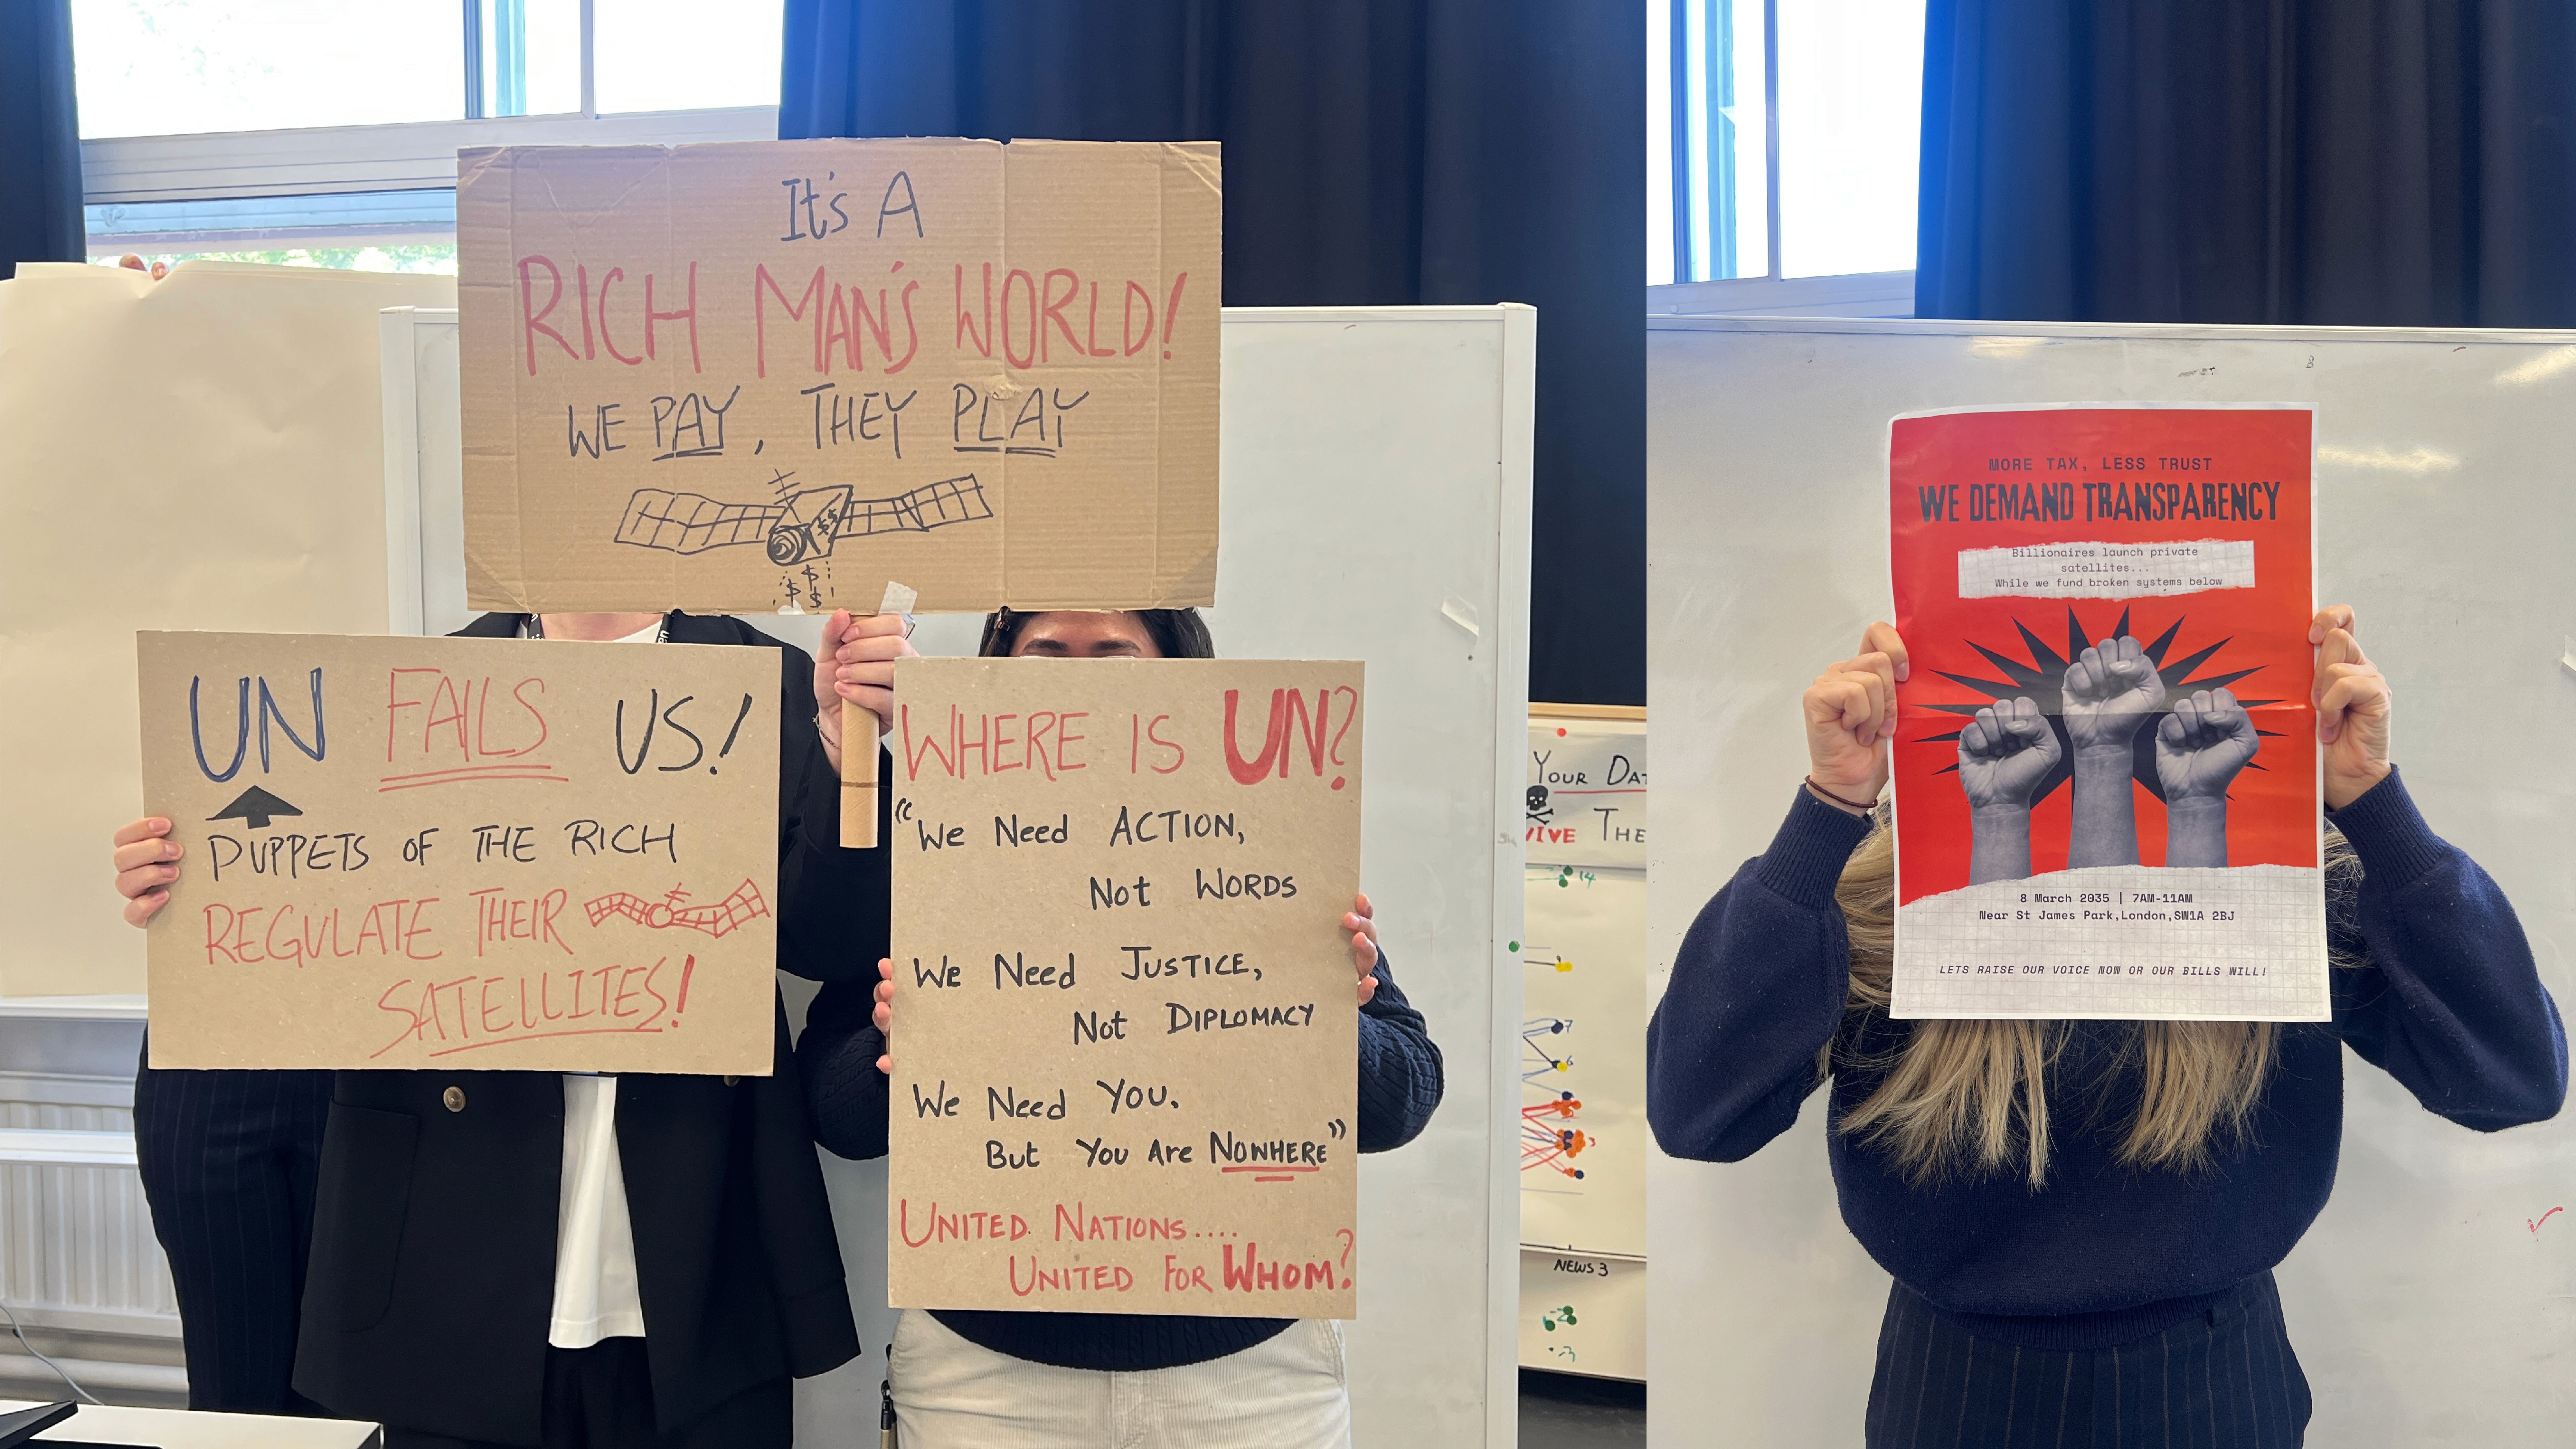 It's A
RICH MAN'S WORLD!
WE PAY, THEY PLAY
$$
$
$ $
UN FAILS US!
PUPPETS OF THE RICH
REGULATE THEIR
SATELLITES!
WHERE IS UN?
"We Need ACTION,
Not WORDS
We Need JUSTICE,
Not DIPLOMACY
We Need YOU.
But You Are NOWHERE"
UNITED NATIONS....
UNITED FOR WHOM?
YOUR DAT
VIVE THE
14
7
6
NEWS 3
MORE TAX, LESS TRUST
WE DEMAND TRANSPARENCY
Billionaires launch private
satellites...
While we fund broken systems below
8 March 2035 | 7AM-11AM
Near St James Park,London,SW1A 2BJ
LETS RAISE OUR VOICE NOW OR OUR BILLS WILL!